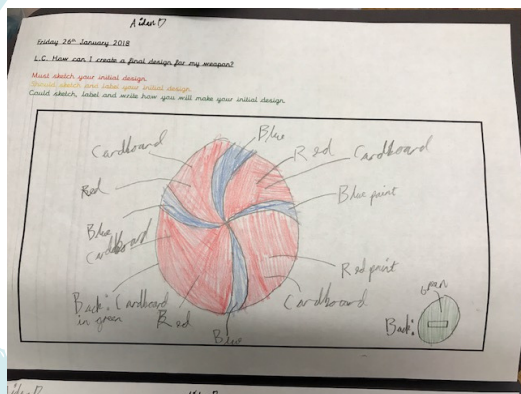 Aiden D
Friday 26th January 2018
L.C. How can I create a final design for my weapon?
Must sketch your initial design
Should sketch and label your initial design
Could sketch, label and write how you will make your initial design
Blue
Cardboard
Red
Cardboard
Red
Blue print
Blue
Cardboard
Red print
Back: Cardboard
in green
Red
Cardboard
Blue
green
Back: